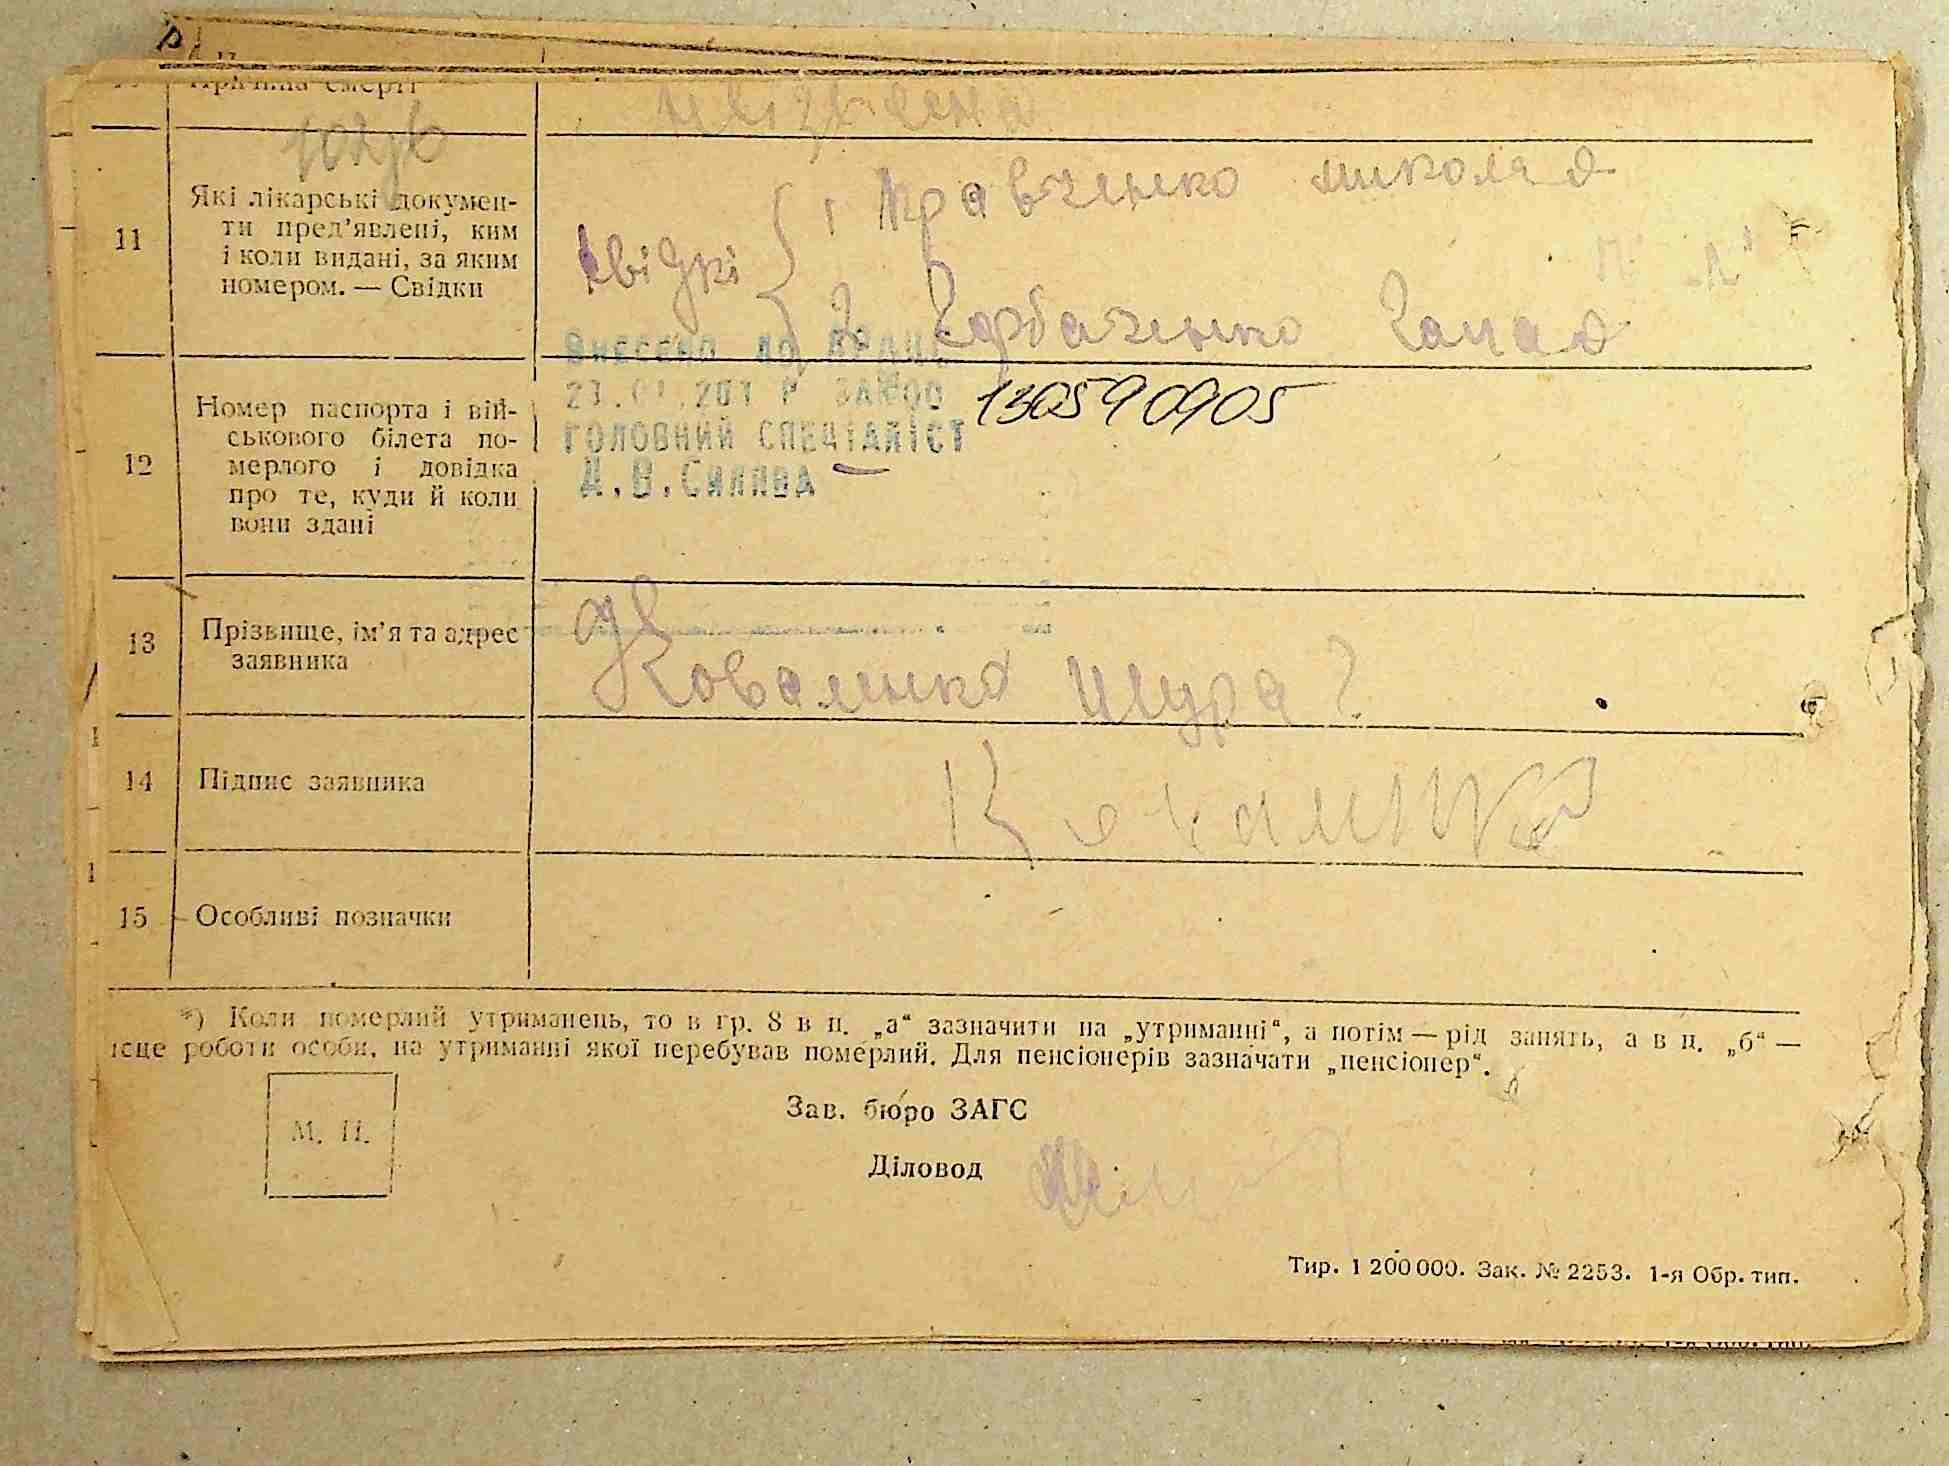 Причина смерті
11 Які лікарські докумен-
ти пред'явлені, ким
і коли видані, за яким
номером. — Свідки
свідкі { 1 Кравченко Миколай
2 Горбаченко Ганая
Внесено до ДРАЦС
ГОЛОВНИЙ СПЕЦІАЛІСТ
130590905
12 Номер паспорта і вій-
ськового білета по-
мерлого і довідка
про те, куди й коли
вони здані
13 Прізвище, ім'я та адрес
заявника
Коваленко Шура
14 Підпис заявника
15 Особливі позначки
*) Коли померлий утриманець, то в гр. 8 в п. „а“ зазначити на „утриманні“, а потім — рід занять, а в п. „б“ —
ісце роботи особи, на утриманні якої перебував померлий. Для пенсіонерів зазначати „пенсіонер“.
М. П.
Зав. бюро ЗАГС
Діловод
Тир. 1 200 000. Зак. № 2253. 1-я Обр. тип.